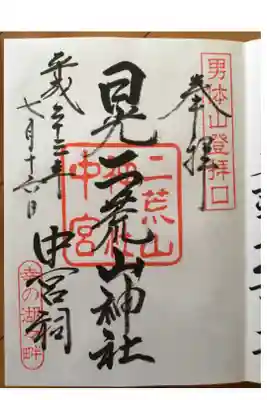 男体山登拝口
奉拝
日光二荒山神社
中宮祠
二荒山
中宮
平成二十三年
七月十六日
幸の湖畔